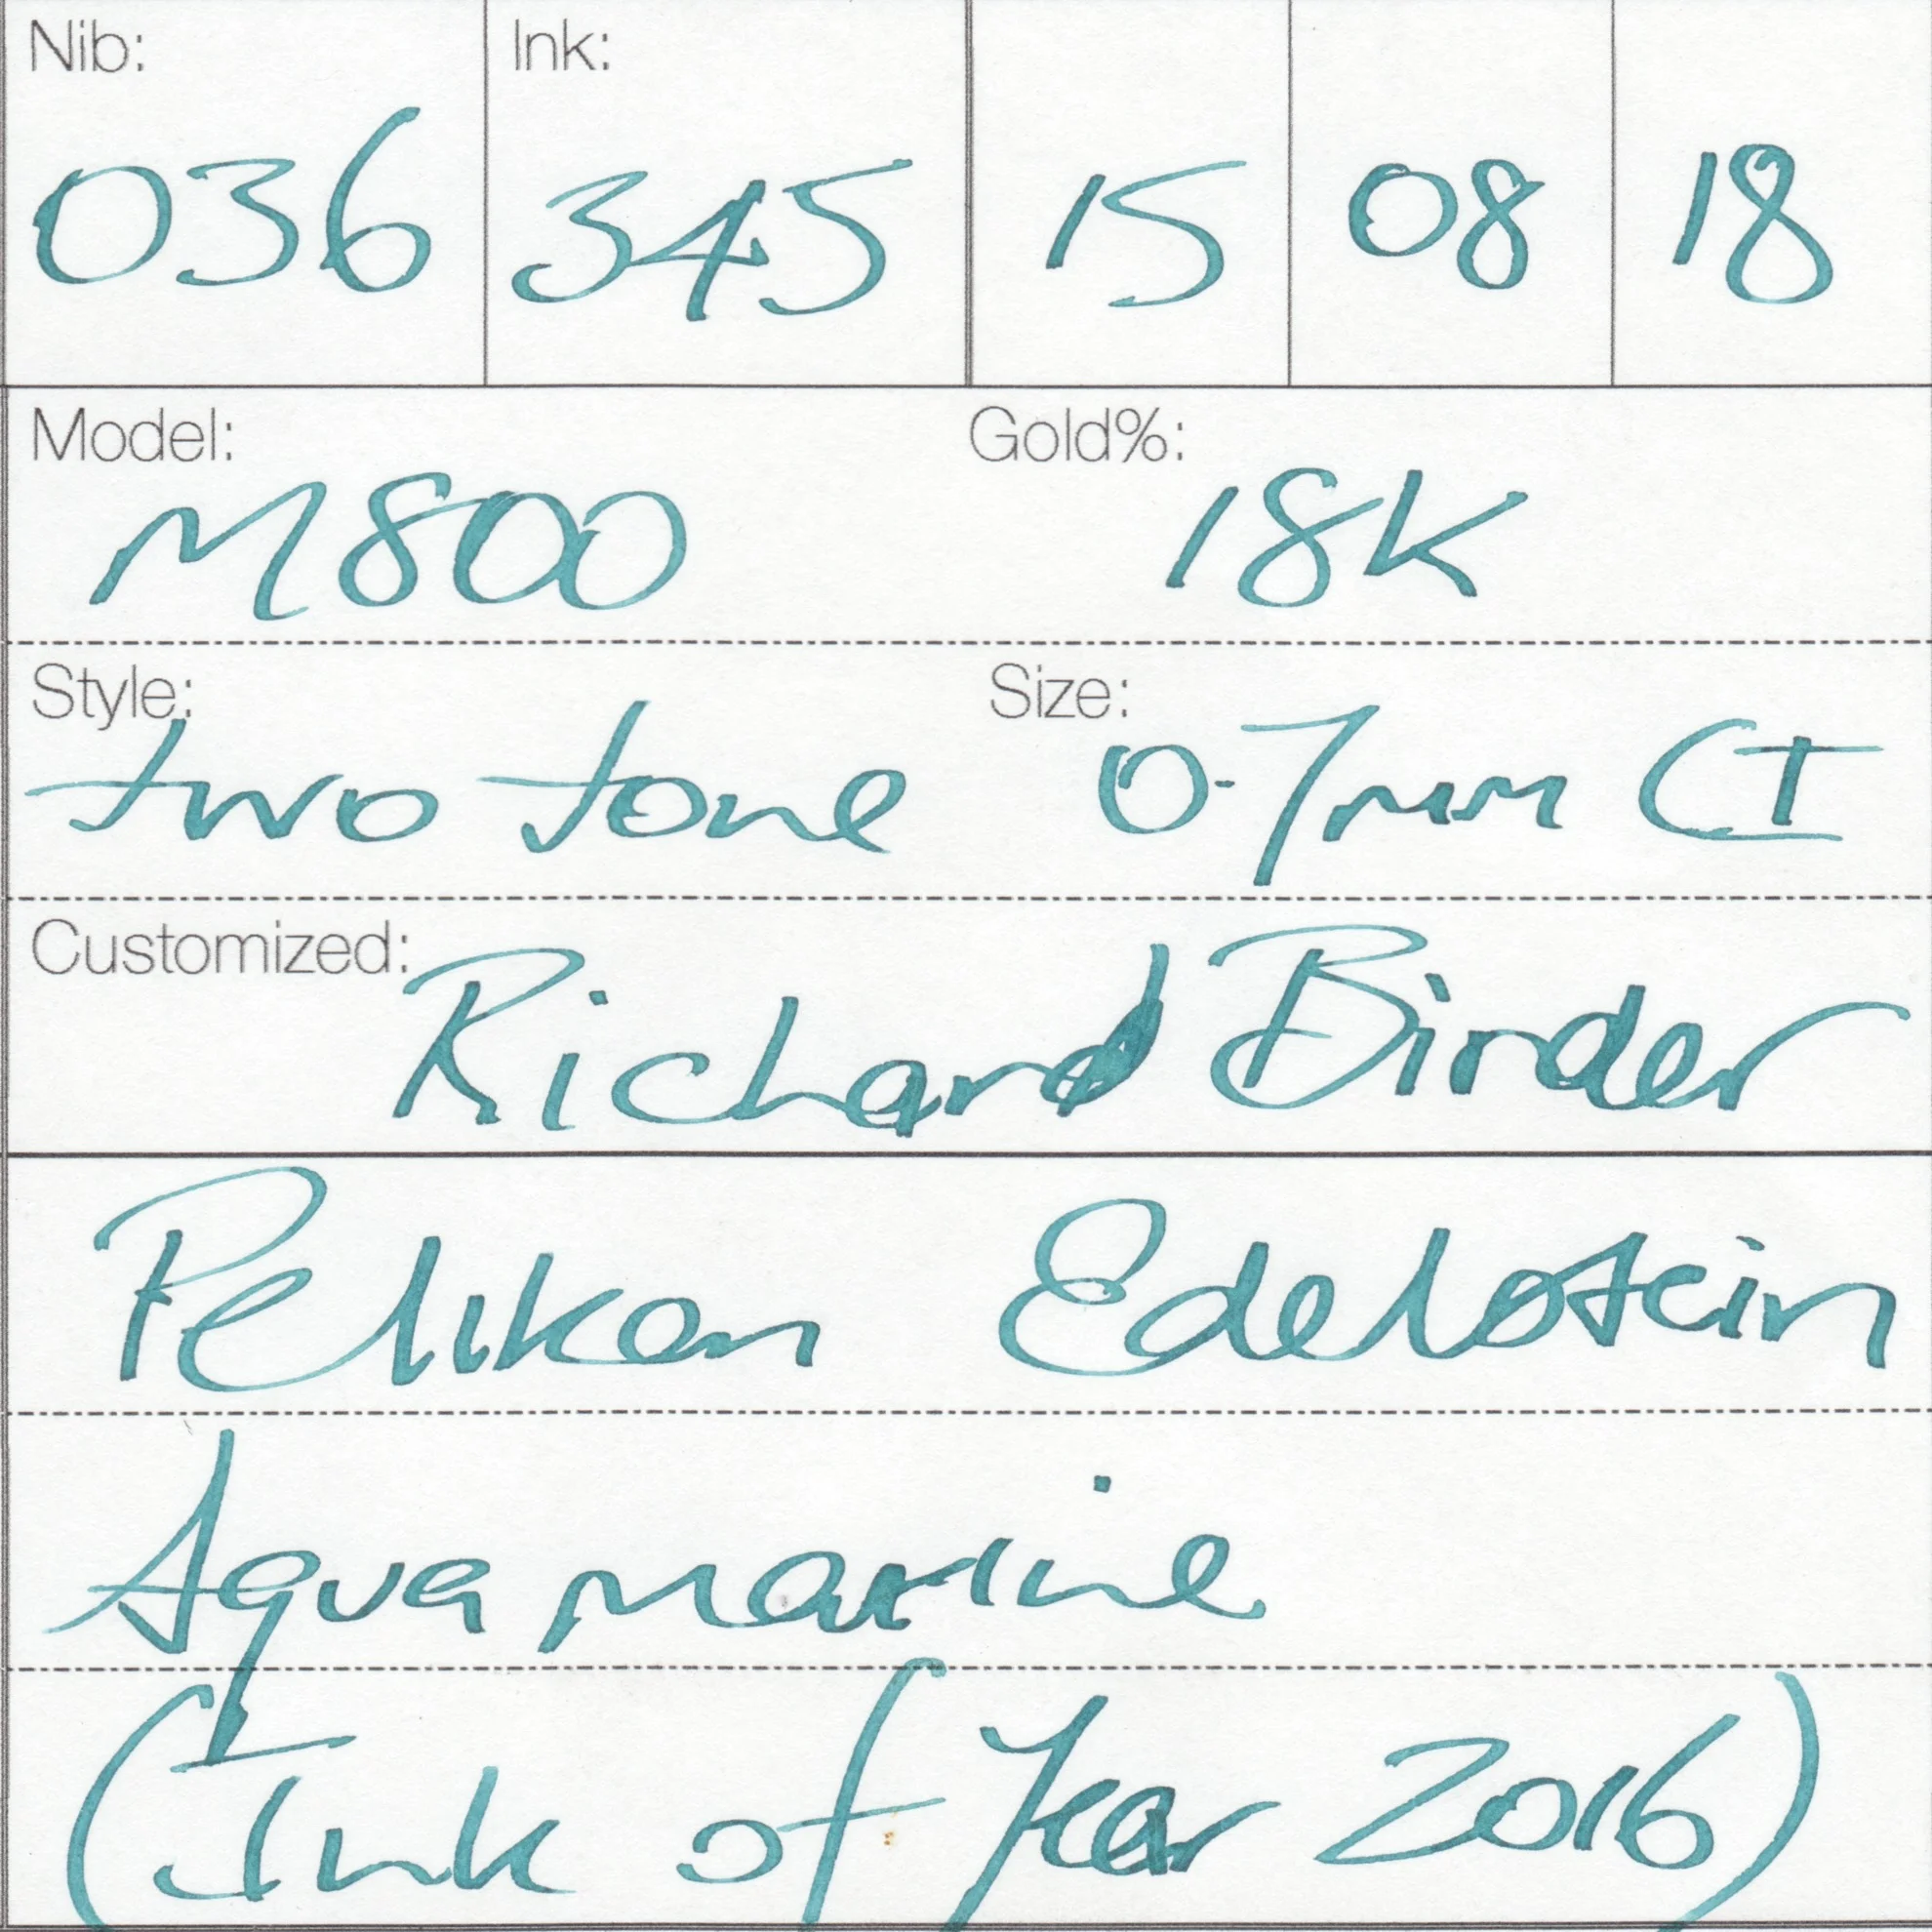 Nib: Ink:
036 345 15 08 18
Model: Gold%:
M800 18K
Style: Size:
two tone 0.7mm CI
Customized: Richard Binder
Pelikan Edelstein
Aquamarine
(Ink of Year 2016)